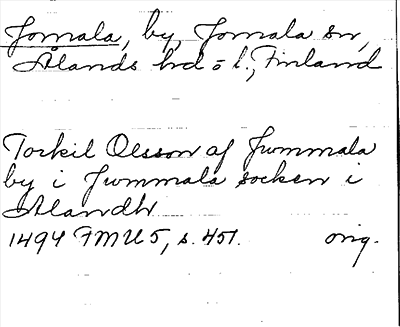 Jomala, by, Jomala sn,
Ålands hd o l., Finland
Torkil Olsson af Jwmmala
by i Jwmmala socken i
Alandh
1494 FMU 5, s. 451. orig.